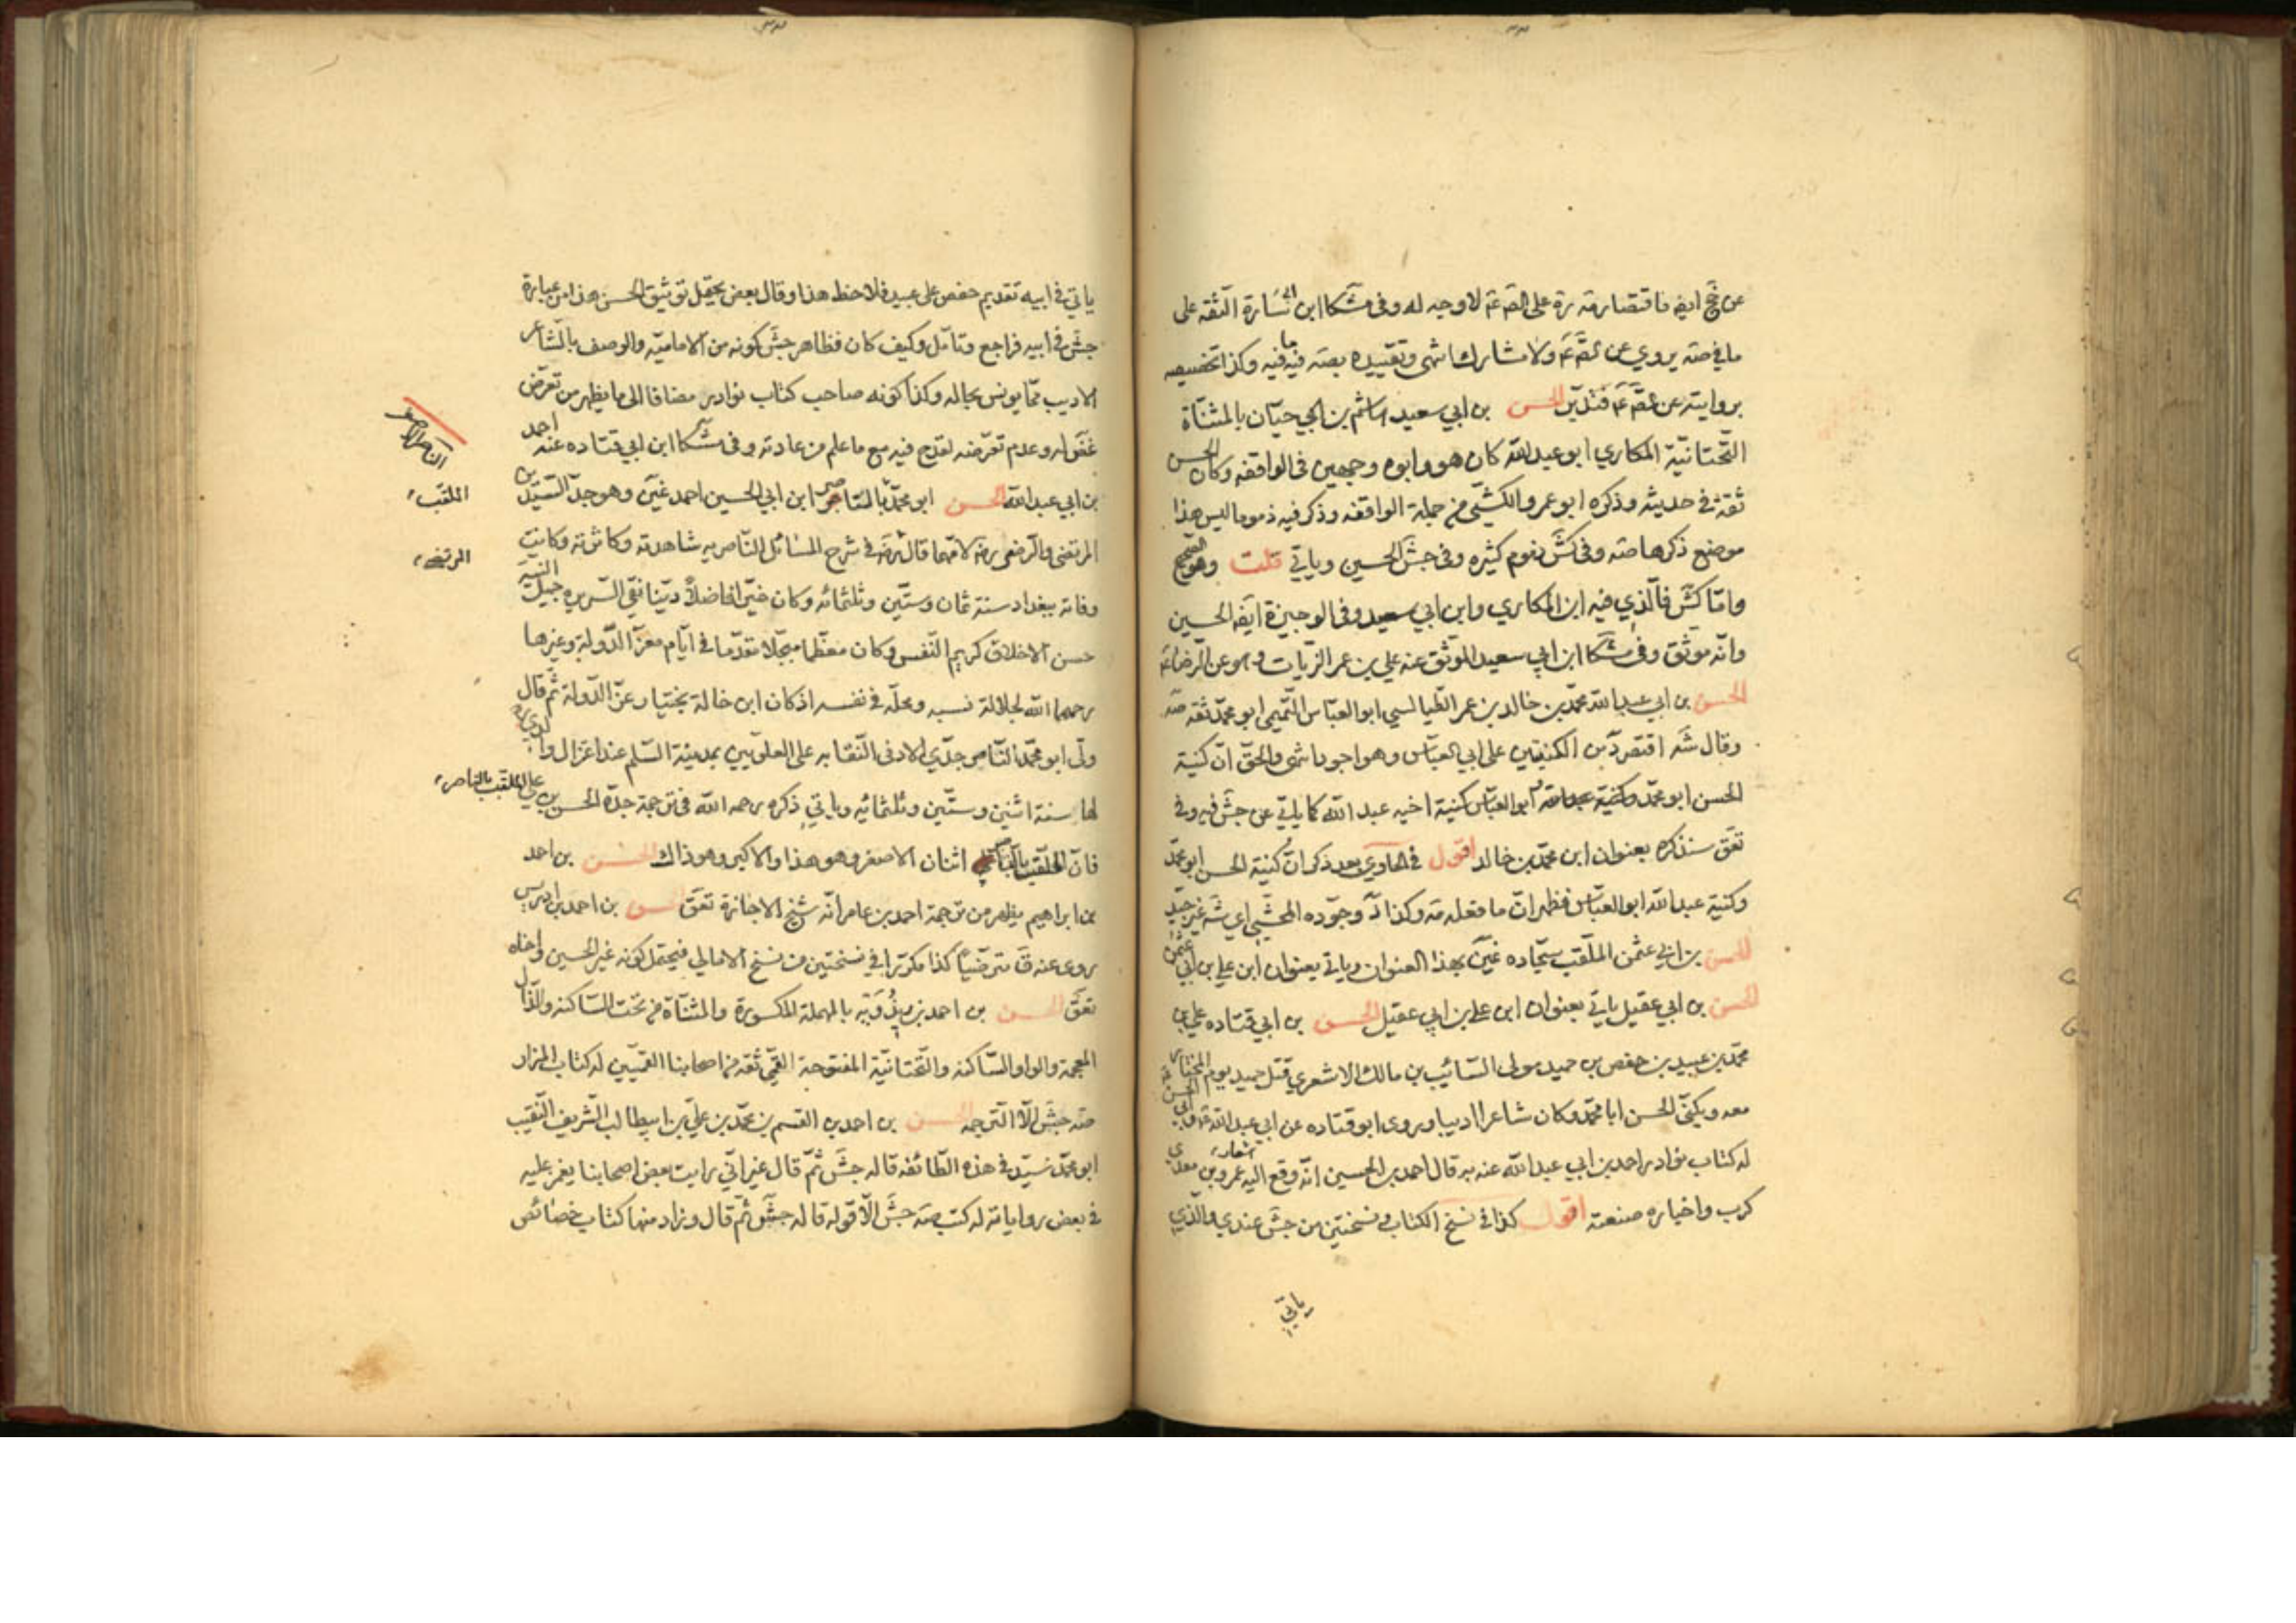 عن جخ ايضه فاقتصار مه ره على الضم عم لا وجه له وفى مشكا ابن ابى سارة الثقه على
ما فى صه يروي عن عم ولا مشارك انتهى وتقييده بصه فيه ما فيه وكذا تخصيصه
بروايته عن فتدبر الحسن بن ابي سعيد هاشم بن حيان بالمثناة
التحتانية المكاري ابو عبد الله كان هو وابوه وجهين فى الواقفه وكان الحسن
ثقة فى حديثه وذكره ابو عمرو الكشى فى جملة الواقفه وذكر فيه ذموما ليس هذا
موضع ذكرها صه وفى كش ذموم كثيره وفى جش الحسين وياتي قلت وهو الصحيح
وامّا كش فالذي فيه ابن المكاري وابن ابي سعيد وفى الوجيزة ايضه الحسين
وانه موثق وفى مشكا ابن ابي سعيد الموثق عنه علي بن عمر الزيات وهو عن الرضا ع
الحسن بن ابي عبد الله محمد بن خالد بن عمر الطيالسي ابو العباس التميمي ابو محمد ثقه صه
وقال شه اقتصر د من الكنيتين على ابي العباس وهو اجود انتهى والحق ان كنية
الحسن ابو محمد وابو العباس كنية اخيه عبد الله كما ياتي عن جش فيه وفى
تعق سنذكره بعنوان ابن محمد بن خالد اقول فى الحاوي بعد ذكر ان كنية الحسن ابو محمد
وكنية عبد الله ابو العباس فظهر ان ما فعله مه وكذا د وجوده المحشي اي شه غير جيد
الحسن بن ابي عثمن الملقب سجاده غين بهذا العنوان وياتي بعنوان ابن علي بن ابي عثمن
الحسن بن ابي عقيل ياتي بعنوان ابن علي بن ابي عقيل الحسن بن ابي قتاده علي بن
محمد بن عبيد بن حفص بن حميد مولى السائب بن مالك الاشعري قتل حميد يوم المختار
معه ويكنى الحسن ابا محمد وكان شاعرا اديبا وروى ابو قتاده عن ابي عبد الله ع وابي الحسن ع
له كتاب نوادر احمد بن ابي عبد الله عنه به قال احمد بن الحسين انه وقع اليه اشعار عمرو بن معدي
كرب واخباره صنعته اقول كذا فى نسخ الكتاب ونسختين من جش عندي والذي
ياتي
ياتي فى ابيه تقديم حفص على عبيد فلاحظ هذا وقال بعض يحتمل توثيق الحسن هذا من عبارة
جش فى ابيه فراجع وتامل وكيف كان فظاهر جش كونه من الاماميه والوصف بالشاعر
الاديب مما يونس بحاله وكذا كونه صاحب كتاب نوادر مضافا الى ما يظهر من تعرض
غض له وعدم تعرضه لقدح فيه مع ما علم من عادته وفى مشكا ابن ابي قتاده عنه احمد
بن ابي عبد الله الحسن ابو محمد الناصر ابن ابي الحسين احمد غين وهو جد السيد بن
المرتضى والرضى رضه لامهما قال رضه فى شرح المسائل الناصريه شاهدته وكاثرته وكانت
وفاته ببغداد سنة ثمان وستين وثلثمائه وكان خيرا فاضلا دينا نقي السريره جميل النية
حسن الاخلاق كريم النفس وكان معظما مبجلا مقدما فى ايام معز الدوله وغيرها
رحمهما الله لجلالة نسبه ومحله فى نفسه اذ كان ابن خالة بختيار عز الدولة ثم قال
ولى ابو محمد الناصر جدي الادنى النقابه على العلويين بمدينة السلم عند اعتزال والدي ره
لها سنة اثنين وستين وثلثمائه وياتي ذكره رحمه الله فى ترجمة جده الحسن بن علي الملقب بالناصر
فان اثنان الاصغر وهو هذا والاكبر وهو ذاك الحسن بن احمد
بن ابراهيم يظهر من ترجمة احمد بن عامر انه شيخ الاجازة تعق الحسن بن احمد بن ادريس
روى عنه ق مترضيا كذا مكررا فى نسختين من نسخ الامالي فيحتمل كونه غير الحسين واخاه
تعق الحسن بن احمد بن ريذويه بالمهملة المكسورة والمثناة من تحت الساكنه والذال
المعجمة والواو الساكنه والتحتانية المفتوحة القمي ثقه من اصحابنا القميين له كتاب المزار
صه جش الا الترجمه الحسن بن احمد بن القسم بن محمد بن علي بن ابيطالب الشريف النقيب
ابو محمد سيد فى هذه الطائفه قاله جش ثم قال غير اني رايت بعض اصحابنا يغمز عليه
فى بعض رواياته له كتب صه جش الا قوله قاله جش ثم قال وزاد منها كتاب خصائص
الناصر الاصغر
الملقب
المرتضى